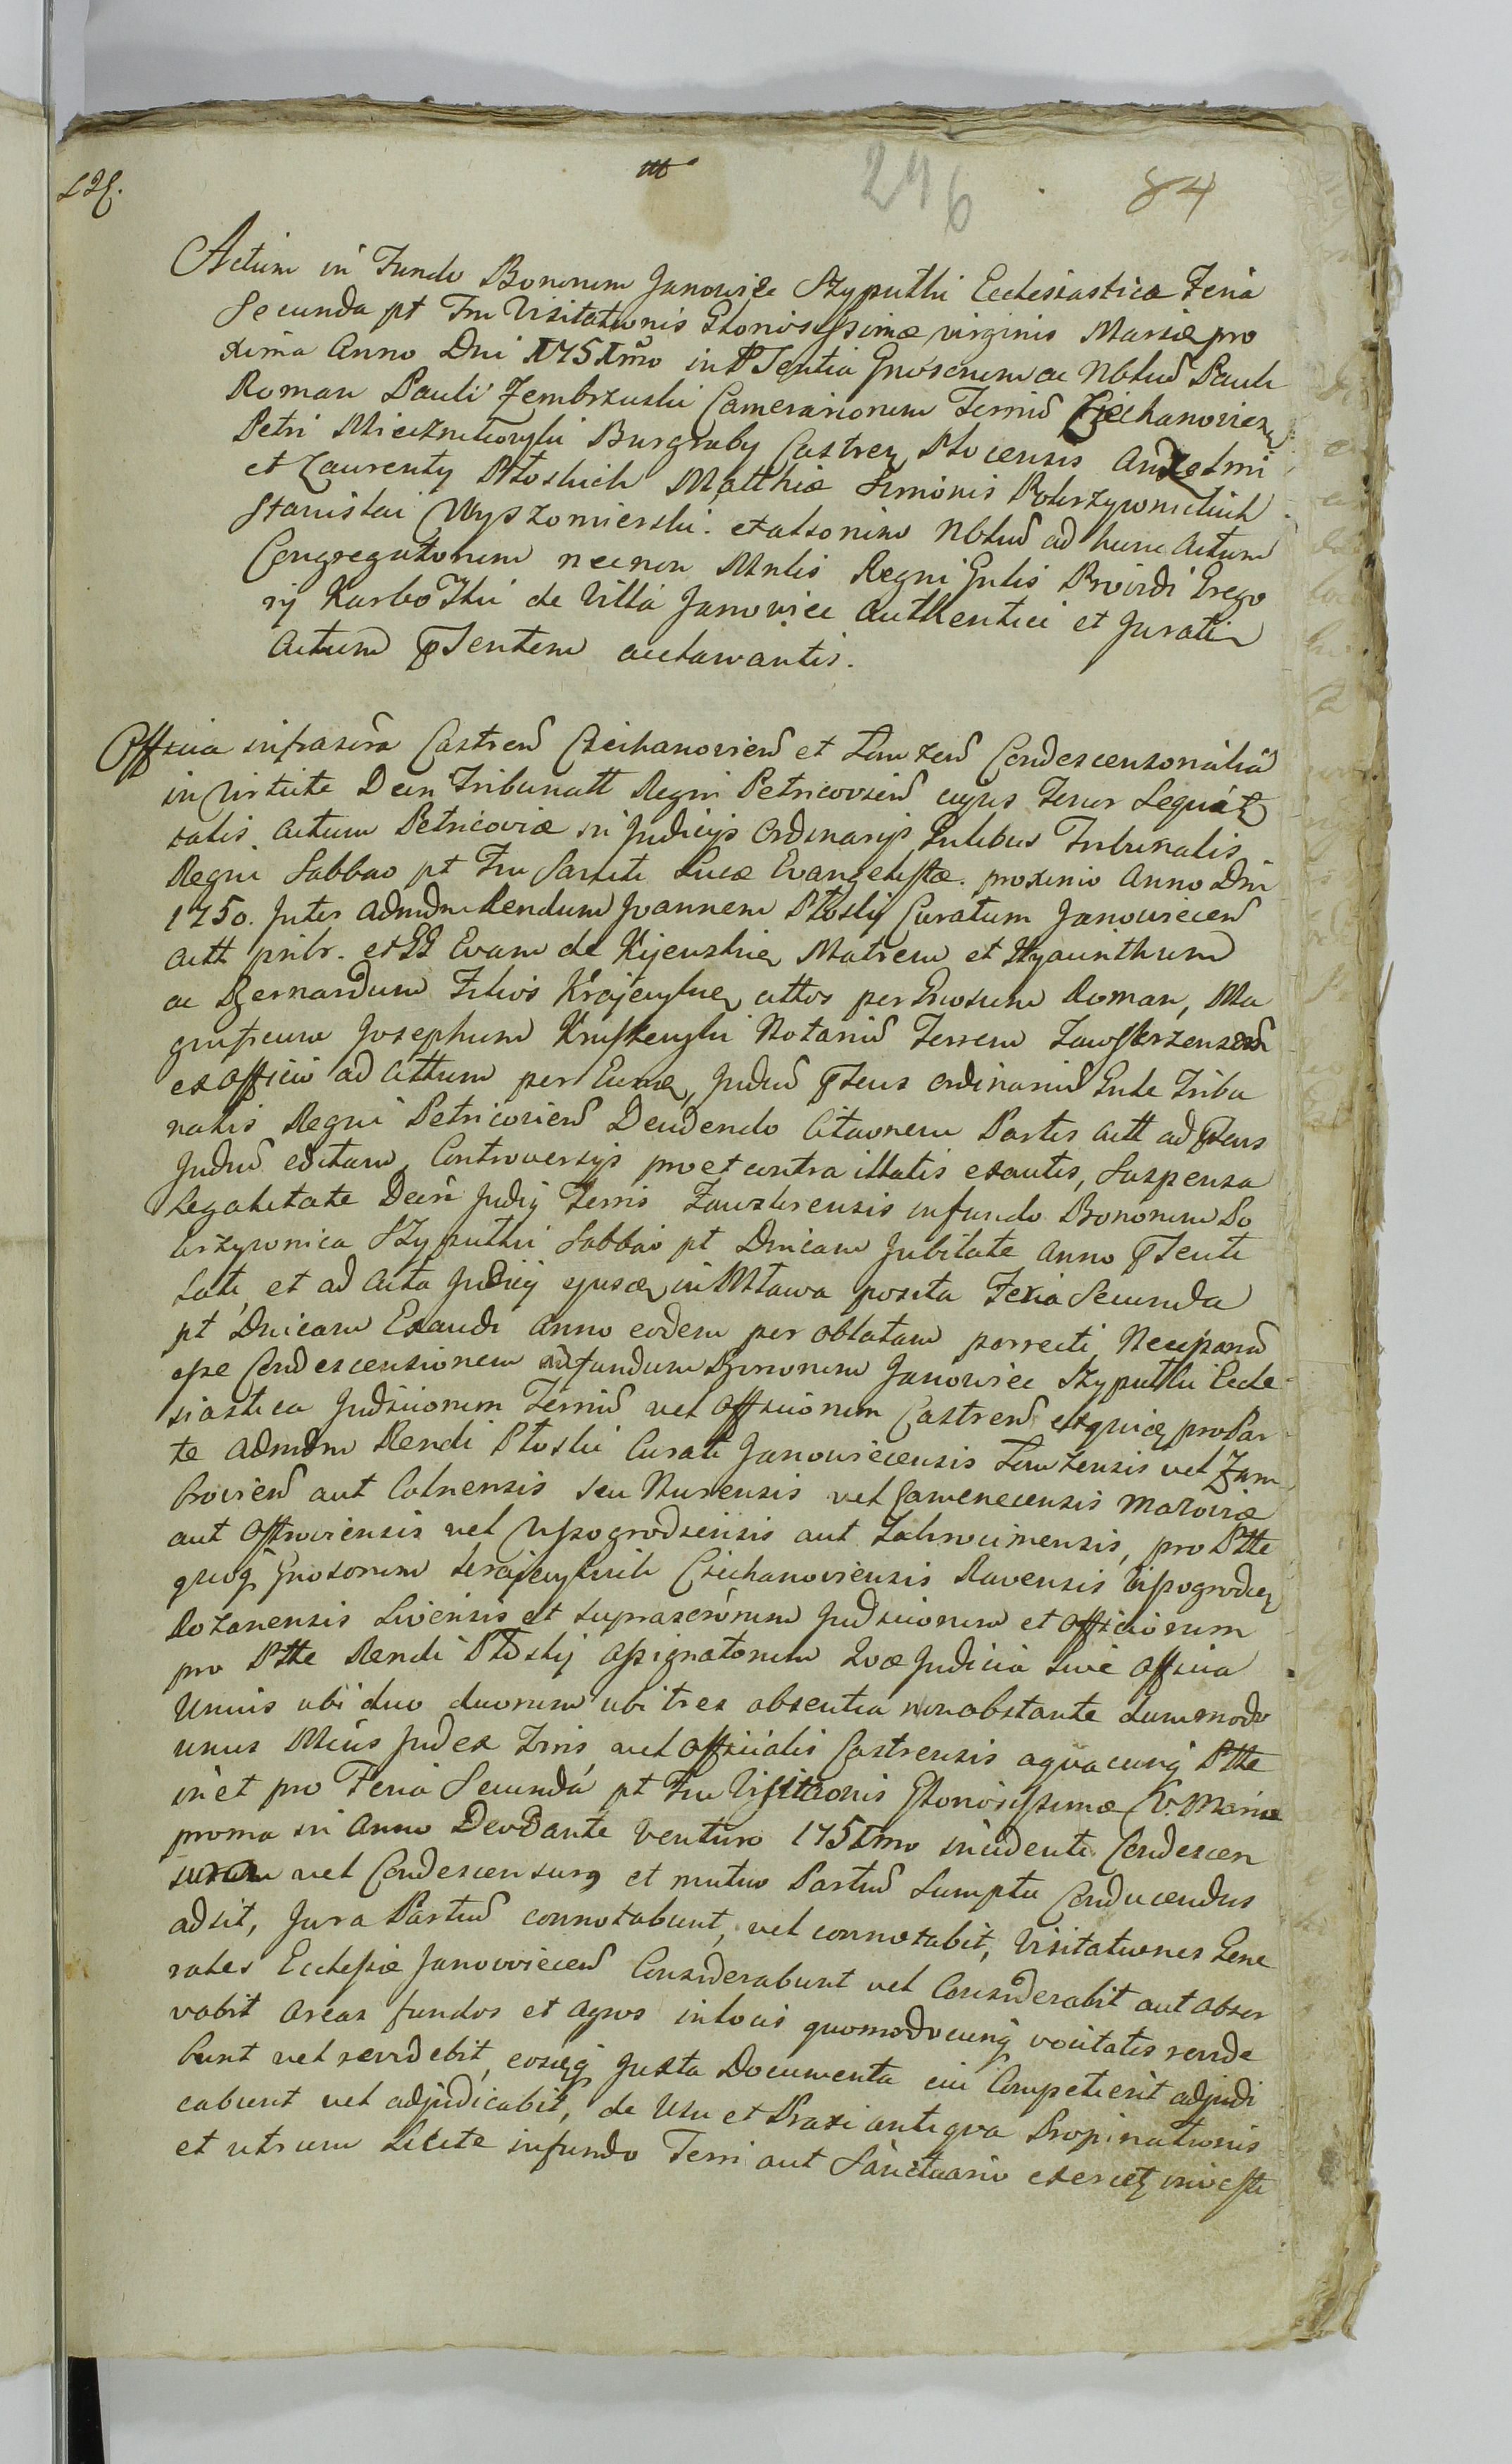 296
84
Actum in Fundo Bonorum Janowięta Szypułki Ecclesiastica Feria
Secunda pt Fm Visitationis Gloriosissimæ virginis Mariæ pro
xima Anno Dni 1751mo in Psentia Gnosorum ac Nbliũ Pauli
Roman Pauli Zembrzuski Camerariorum Terrũ Ciechanovien
Petri Miecznikowski Burgraby Castren Plocensis Anzelmi
et Laurenty Płoskich Matthiæ Simonis Pokrzywnickich
Stanislai Wyszomierski. et alionim Nbliũ ad hunc Actum
Congregatorum nec non Mnlis Regni Gnlis Providi Grego
rij Karbo Ski de Villa Janowice Authentici et Jurati
Actum pSentem acclamantis.
Officia infrascra Castren Czechanovien et Lomzen Condescensorialia
in Virtute Decri Tribunatt Regni Petricovien cujus Tenor Sequit
talis. Actum Petricoviæ in Judicijs Ordinarijs Gnlibus Tribunalis
Regni Sabbao pt Fm Sancti Lucæ Evangelistæ. proximo Anno Dni
1750. Inter Admdm Rendum Joannem Płoski Curatum Janowiecen
Actt pnbr. et GG Evam de Kijenskie Matrem et Hyacinthum
ac Bernardum Filios Krajewskie cittos per Gnosum Roman, Ma
gnificum Josephum Notariũ Terren Zawskrzensem
ex officio ad Cittum per Eunde, Judiũ pSens Ordinariũ Gnle Tribu
nalis Regni Petricovien Decidendo Citaonem Partis Actt ad pSens
Judiũ editam, Controversijs pro et contra illatis exautis, Suspensa
Legalitate Decri Judij Terris Zawskrensis in fundo Bonorum Po
krzywnica Szypułki Sabbao pt Dnicam Jubilate Anno pSenti
Lati, et ad Acta Judicij ejusde in Mława posita Feria Secunda
pt Dnicam Exaudi Anno eodem per oblatam porrecti
esse Condescensionem ad fundum Bonorum Janowiec Szypułki Eccle
siastica Judiciorum Terriũ vel Officiorum Castren utpote pro Par
te Admdm Rendi Płoski Curati Janowiecensis Lomzensis vel Zam
brovien aut Colnensis seu Nurensis vel Camenecensis Mazoviæ
aut Ostroviensis vel Wyszogrodsensis aut Zakrocimensis, pro Ptte
quoq Gnosorum Krajewskich Ciechanoviensis Ravensis Wyszogrodien
Rozanensis Liviensis et suprascrorum Judiciorum et Officiorum
pro Ptte Rendi Płoskij assignatorum Quæ Judicia sive Officia
Unius ubi duo duorum ubi tres absentia non obstante dummodo
unus Judex Trris vel Officialis Castrensis a quacunq Ptte
in et pro Feria Secunda pt Fm Visittaonis Gloriosissimæ V. Mariæ
proma in Anno Deo Dante Venturo 1751mo incidenti Condescen
surum vel Condescensurg et mutuo Partiũ Sumptu Conducendus
adsit, Jura Partiũ connotabunt, vel connotabit, Visitationes Gene
rales Ecclesiæ Janowiecen Considerabunt vel Considerabit aut Obser
vabit Areas fundos et Agros in locis quomodocunq vocitatis revide
bunt vel revidebit, eosq Juxta Documenta cui Competierit adjudi
cabunt vel adjudicabit, de Usu et Praxi antiqua Propinationis
et utrum Licite in fundo Terri aut Sanctuario exercet investi